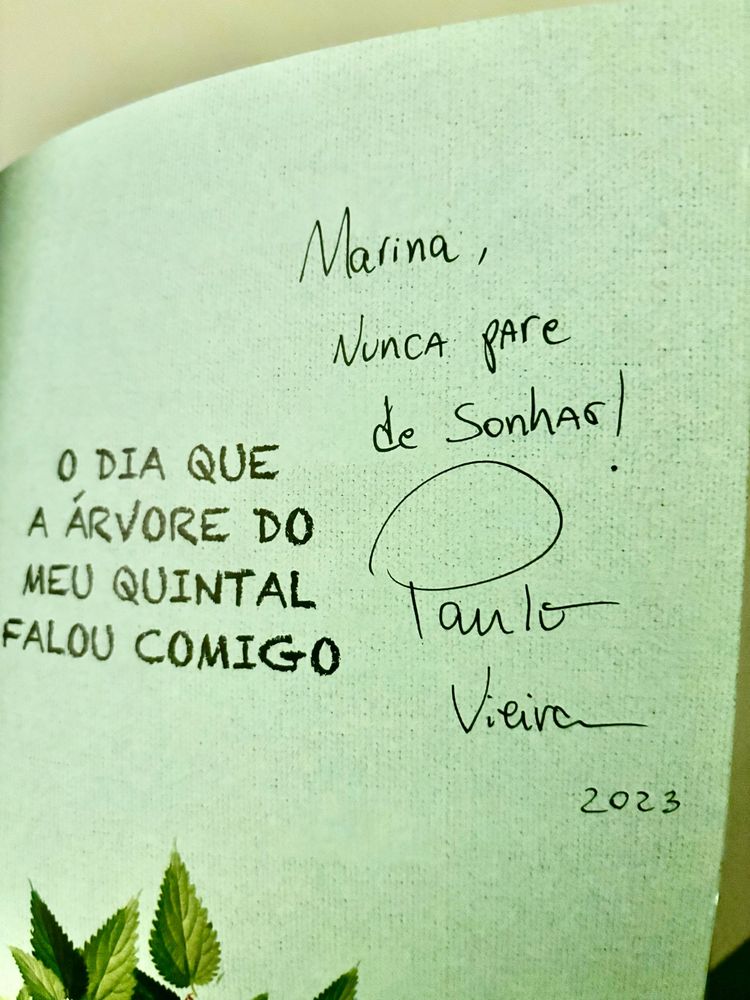 Marina,
Nunca pare
de sonhar!
Paulo
Vieira
2023
O DIA QUE
A ÁRVORE DO
MEU QUINTAL
FALOU COMIGO